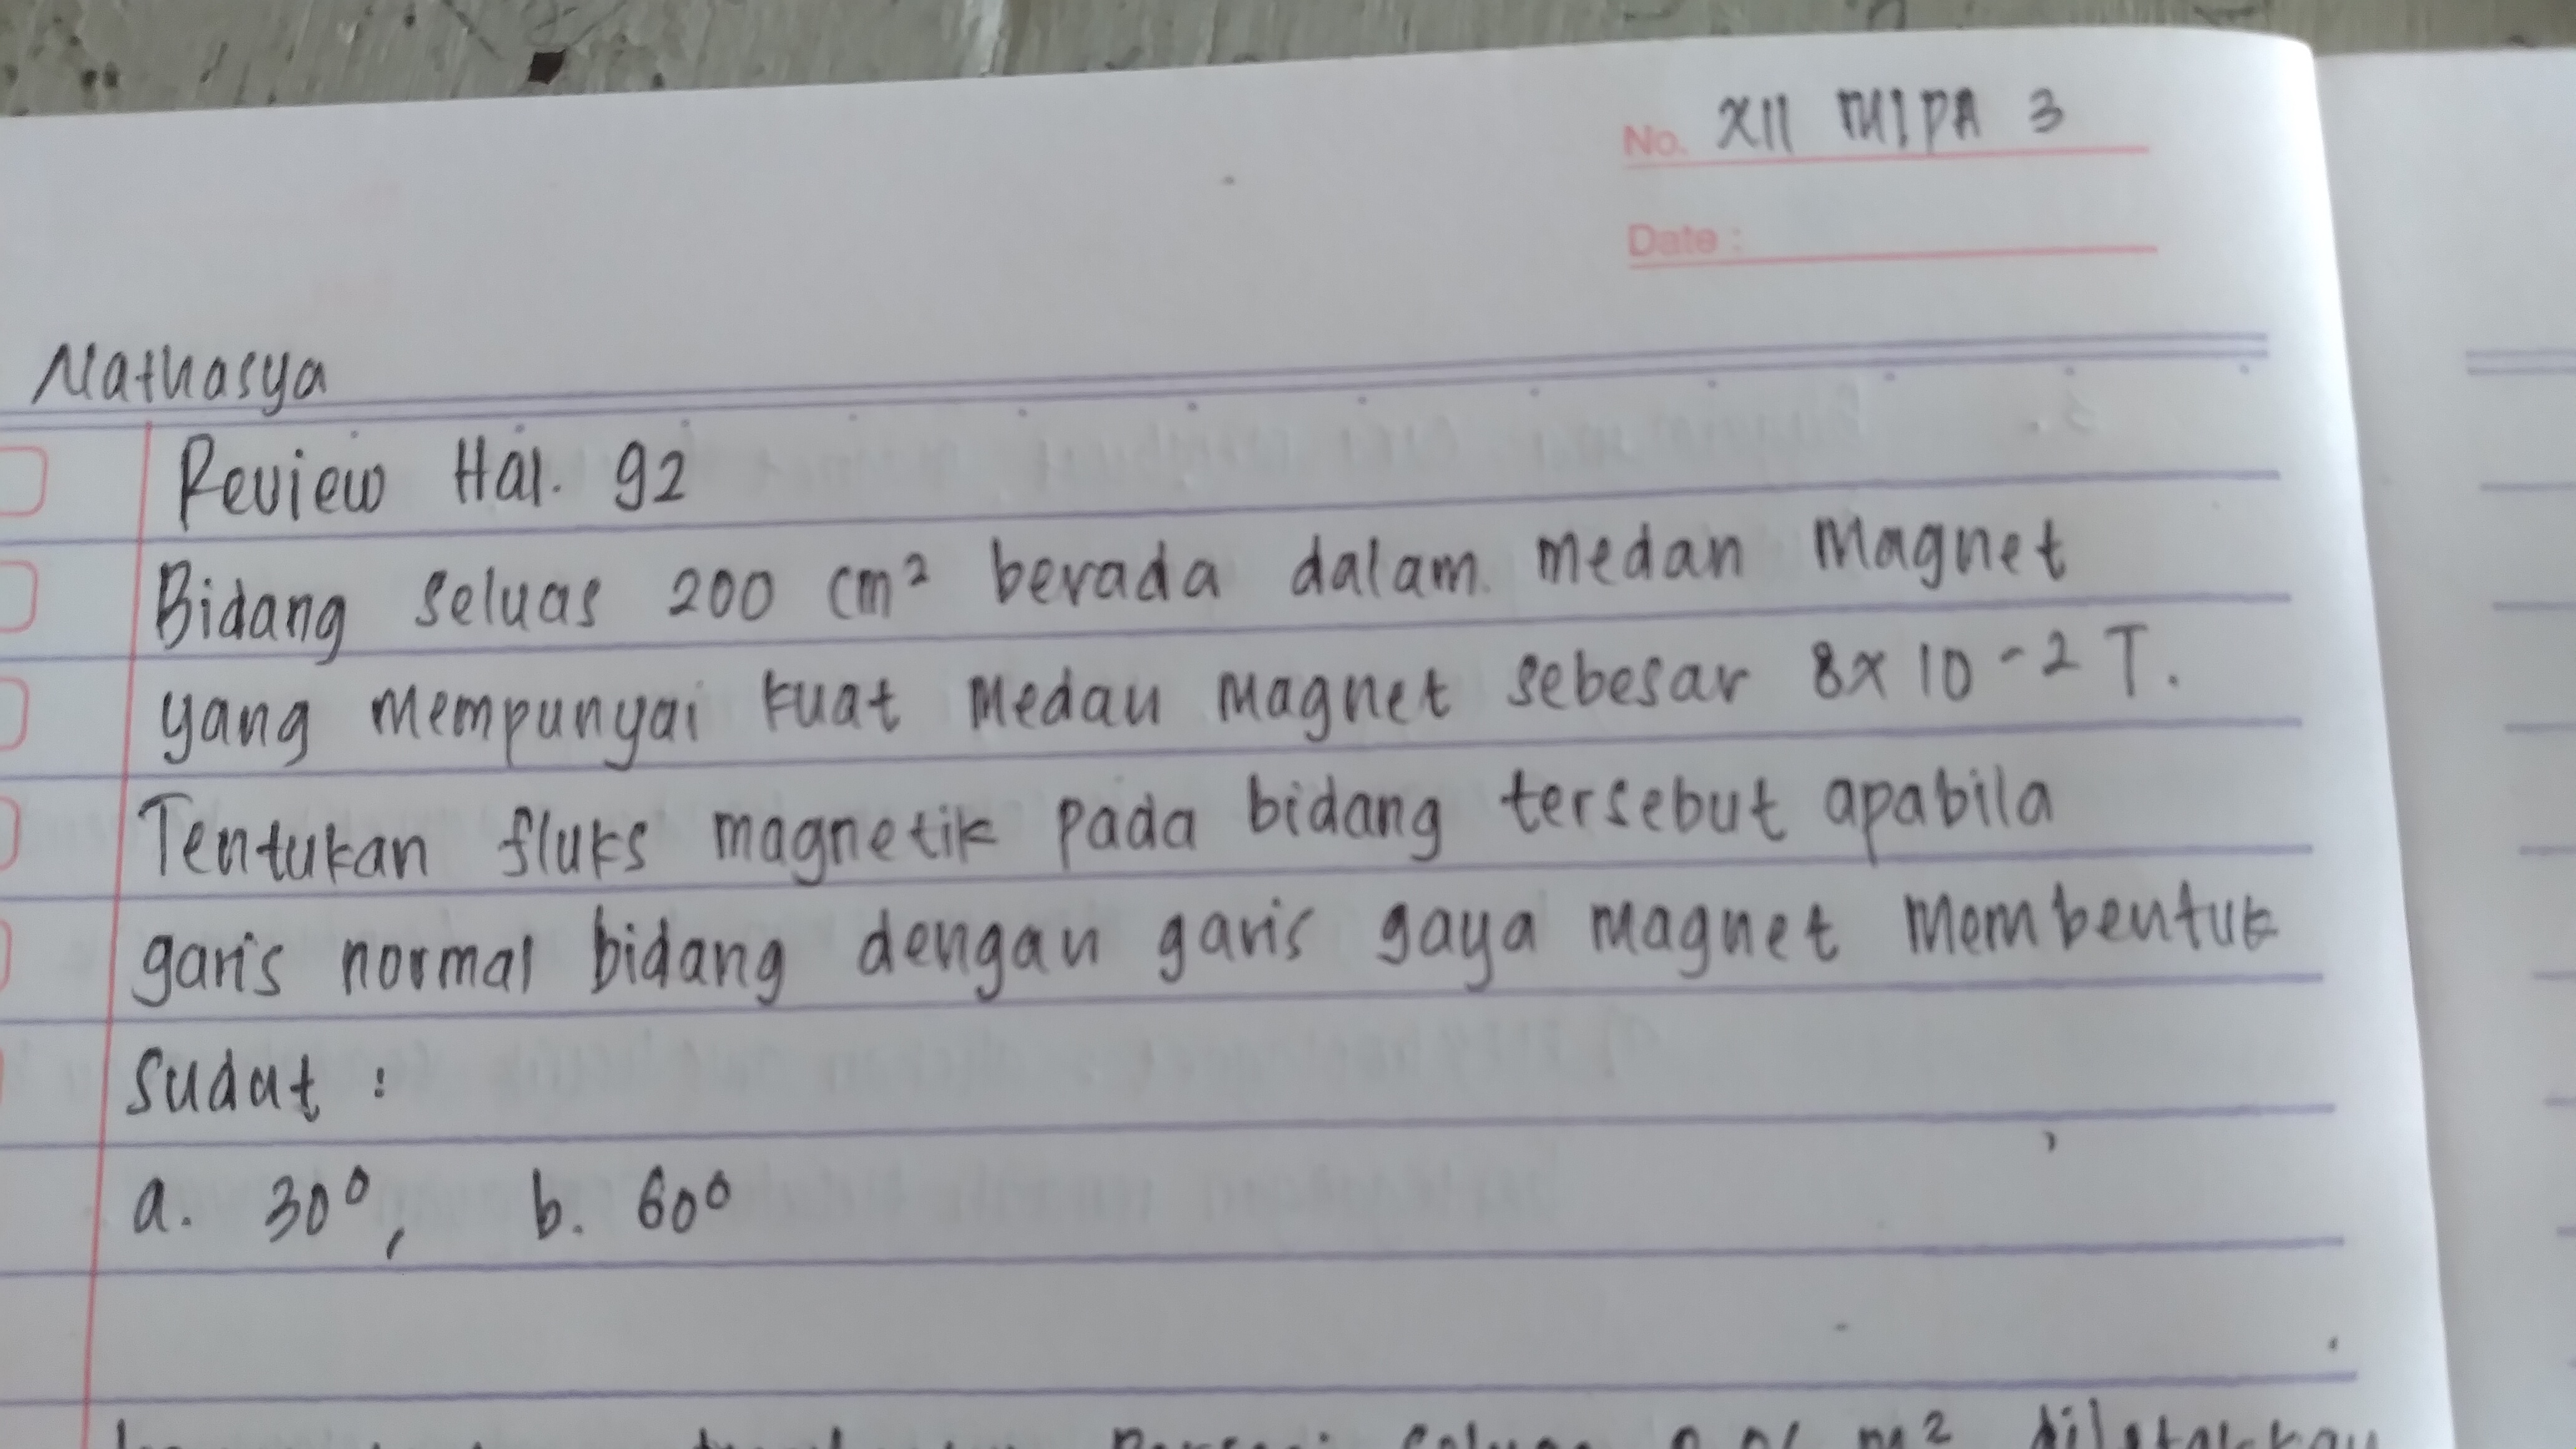 No. XII MIPA 3
Date :
Nathasya
Review Hal. 92
Bidang seluas 200 cm² berada dalam medan magnet
yang mempunyai kuat medan magnet sebesar 8x10-2 T.
Tentukan fluks magnetik pada bidang tersebut apabila
garis normal bidang dengan garis gaya magnet membentuk
Sudut :
a. 30°, b. 60°
m² diletakkan